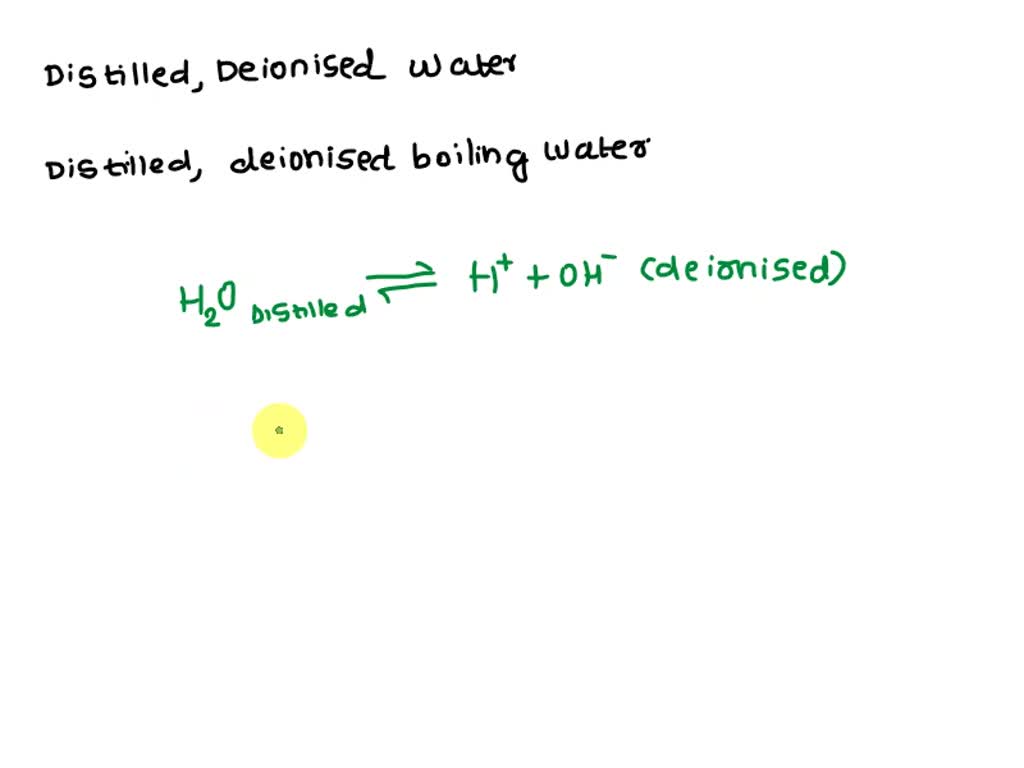 Distilled, Deionised water
Distilled, deionised boiling water
H₂O Distilled ⇌ H⁺ + OH⁻ (deionised)